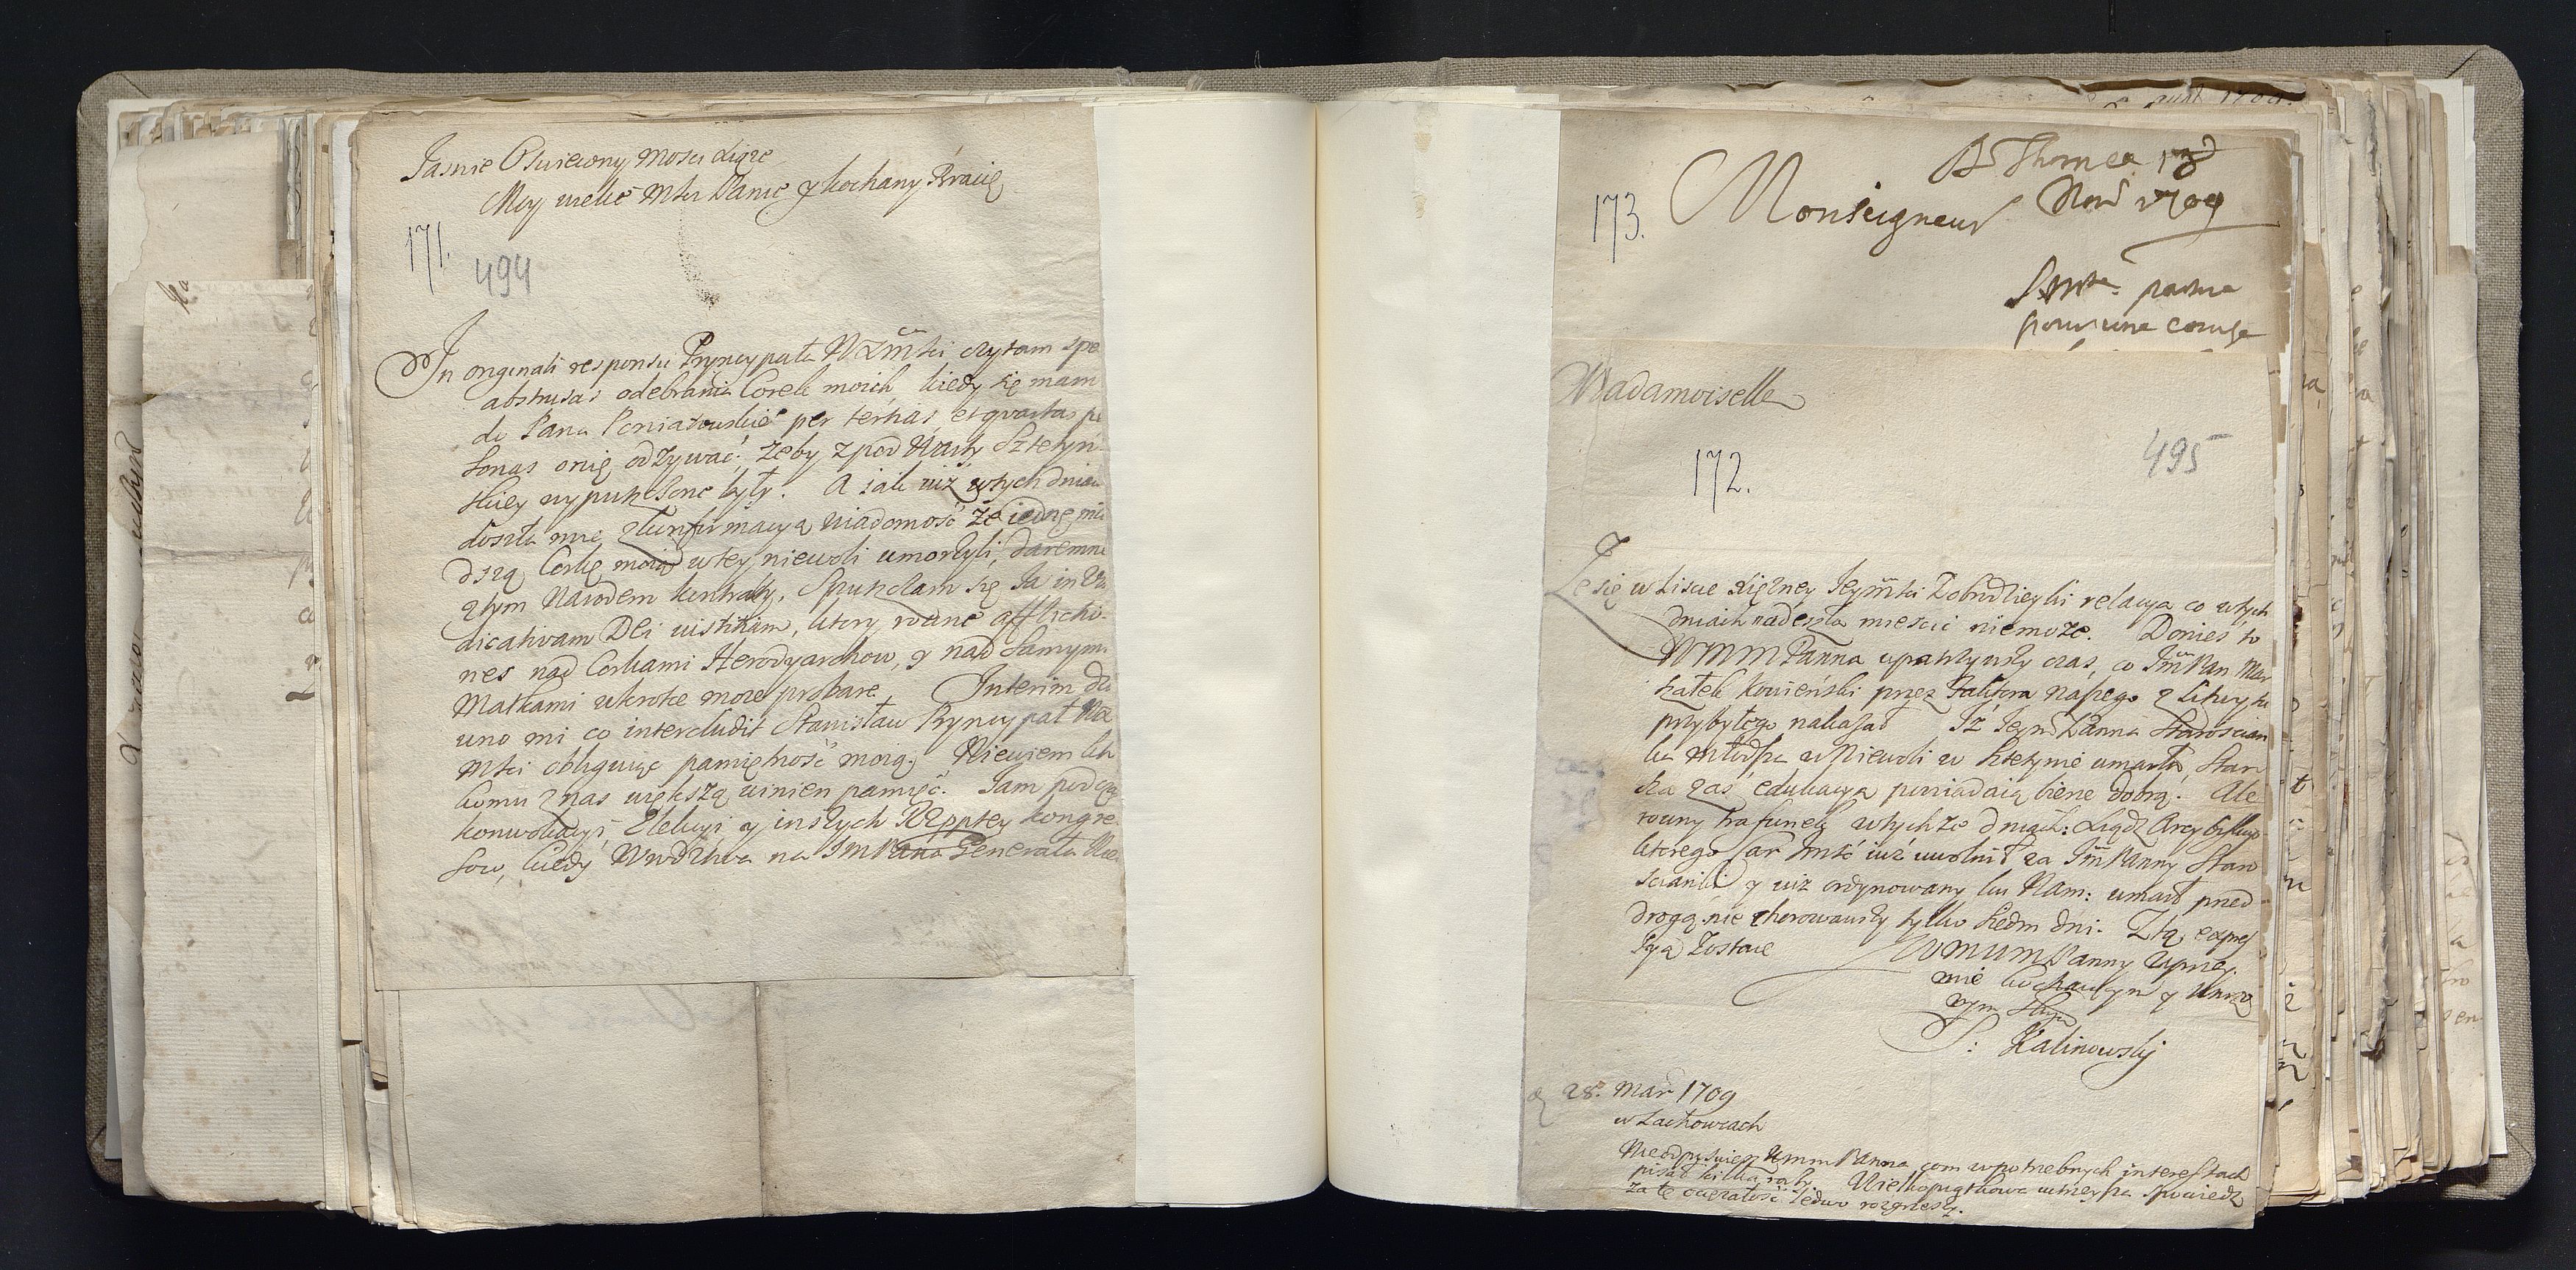 Jasnie Oswiecony Mości Xiąze
Moy wielce Mści Panie y kochany Bracie
171.
494
In originali responsu Pryncypała WXmści czytam spe
abstrusas odebrania Corek moich, kiedy się mam
do Pana Poniatowskie per tertias, et quartas per
sonas onię odzywać; żeby z pod Warty Sztetyn
skiey wypuszczone były. A iak iuż w tych dniach
doszła mię z konfirmacyą wiadomość że iednę mło
dszą Corkę moię w tey niewoli umorzyli, daremne
z tym Narodem kontrakty. Spuszczam się Ja in
dicativam DEi iustitiam, ktory rowne afflictio
nes nad Corkami Herodyardow, y nad samym
Matkami wkrotce more probare. Interim du
uno mi co intercludit Stanisław Pryncypał WX
Mści obliguiąc pamiętność moię. Niewiem kto
komu z nas większą winien pamięć. Sam pod czas
konwokacyi, Elekcyi y inszych Rzpptey kongre
sow, kiedy na Generała
173.
Monseigneur
Thornea 13
Nov 1709
pour une
Madamoiselle
495
172.
Ze się w Liscie Xiężney Jeymści Dobrodzieyki relacya co w tych
dniach nadeszła miescic niemoże. Donies to
WMM Panna upatrzywszy czas, co Jm Pan Mar
szałek Kowieński przez Faktora naszego z Litwy tu
przybyłego nakazał Iż Jeym Panna Starościan
ka młodsza w Niewoli w Sztetynie umarła, Star
sza zaś edukacyą powiadaią bierze dobrą. Ale
rowny trafunek w tychże dniach: Xiądz Arcybiskup
ktorego Car Jmść iuż uwolnił za Jm Panny Staro
scianki y iuż ordynowany ku Nam: umarł przed
drogą nie chorowawszy tylko siedm dni. Ztą expres
syą Zostaie WMMM Panny uprzey.
mie kochaiącym y
nym sługą
S: Kalinowskj
d 28. Mar 1709
w Lachowcach
Nieodpisuiesz Wmm Panna, com w potrzebnych interessach
pisał kilka razy. Wielkopiątkowa umieysza spowiedz
za tę ledwo rozgrzeszy.